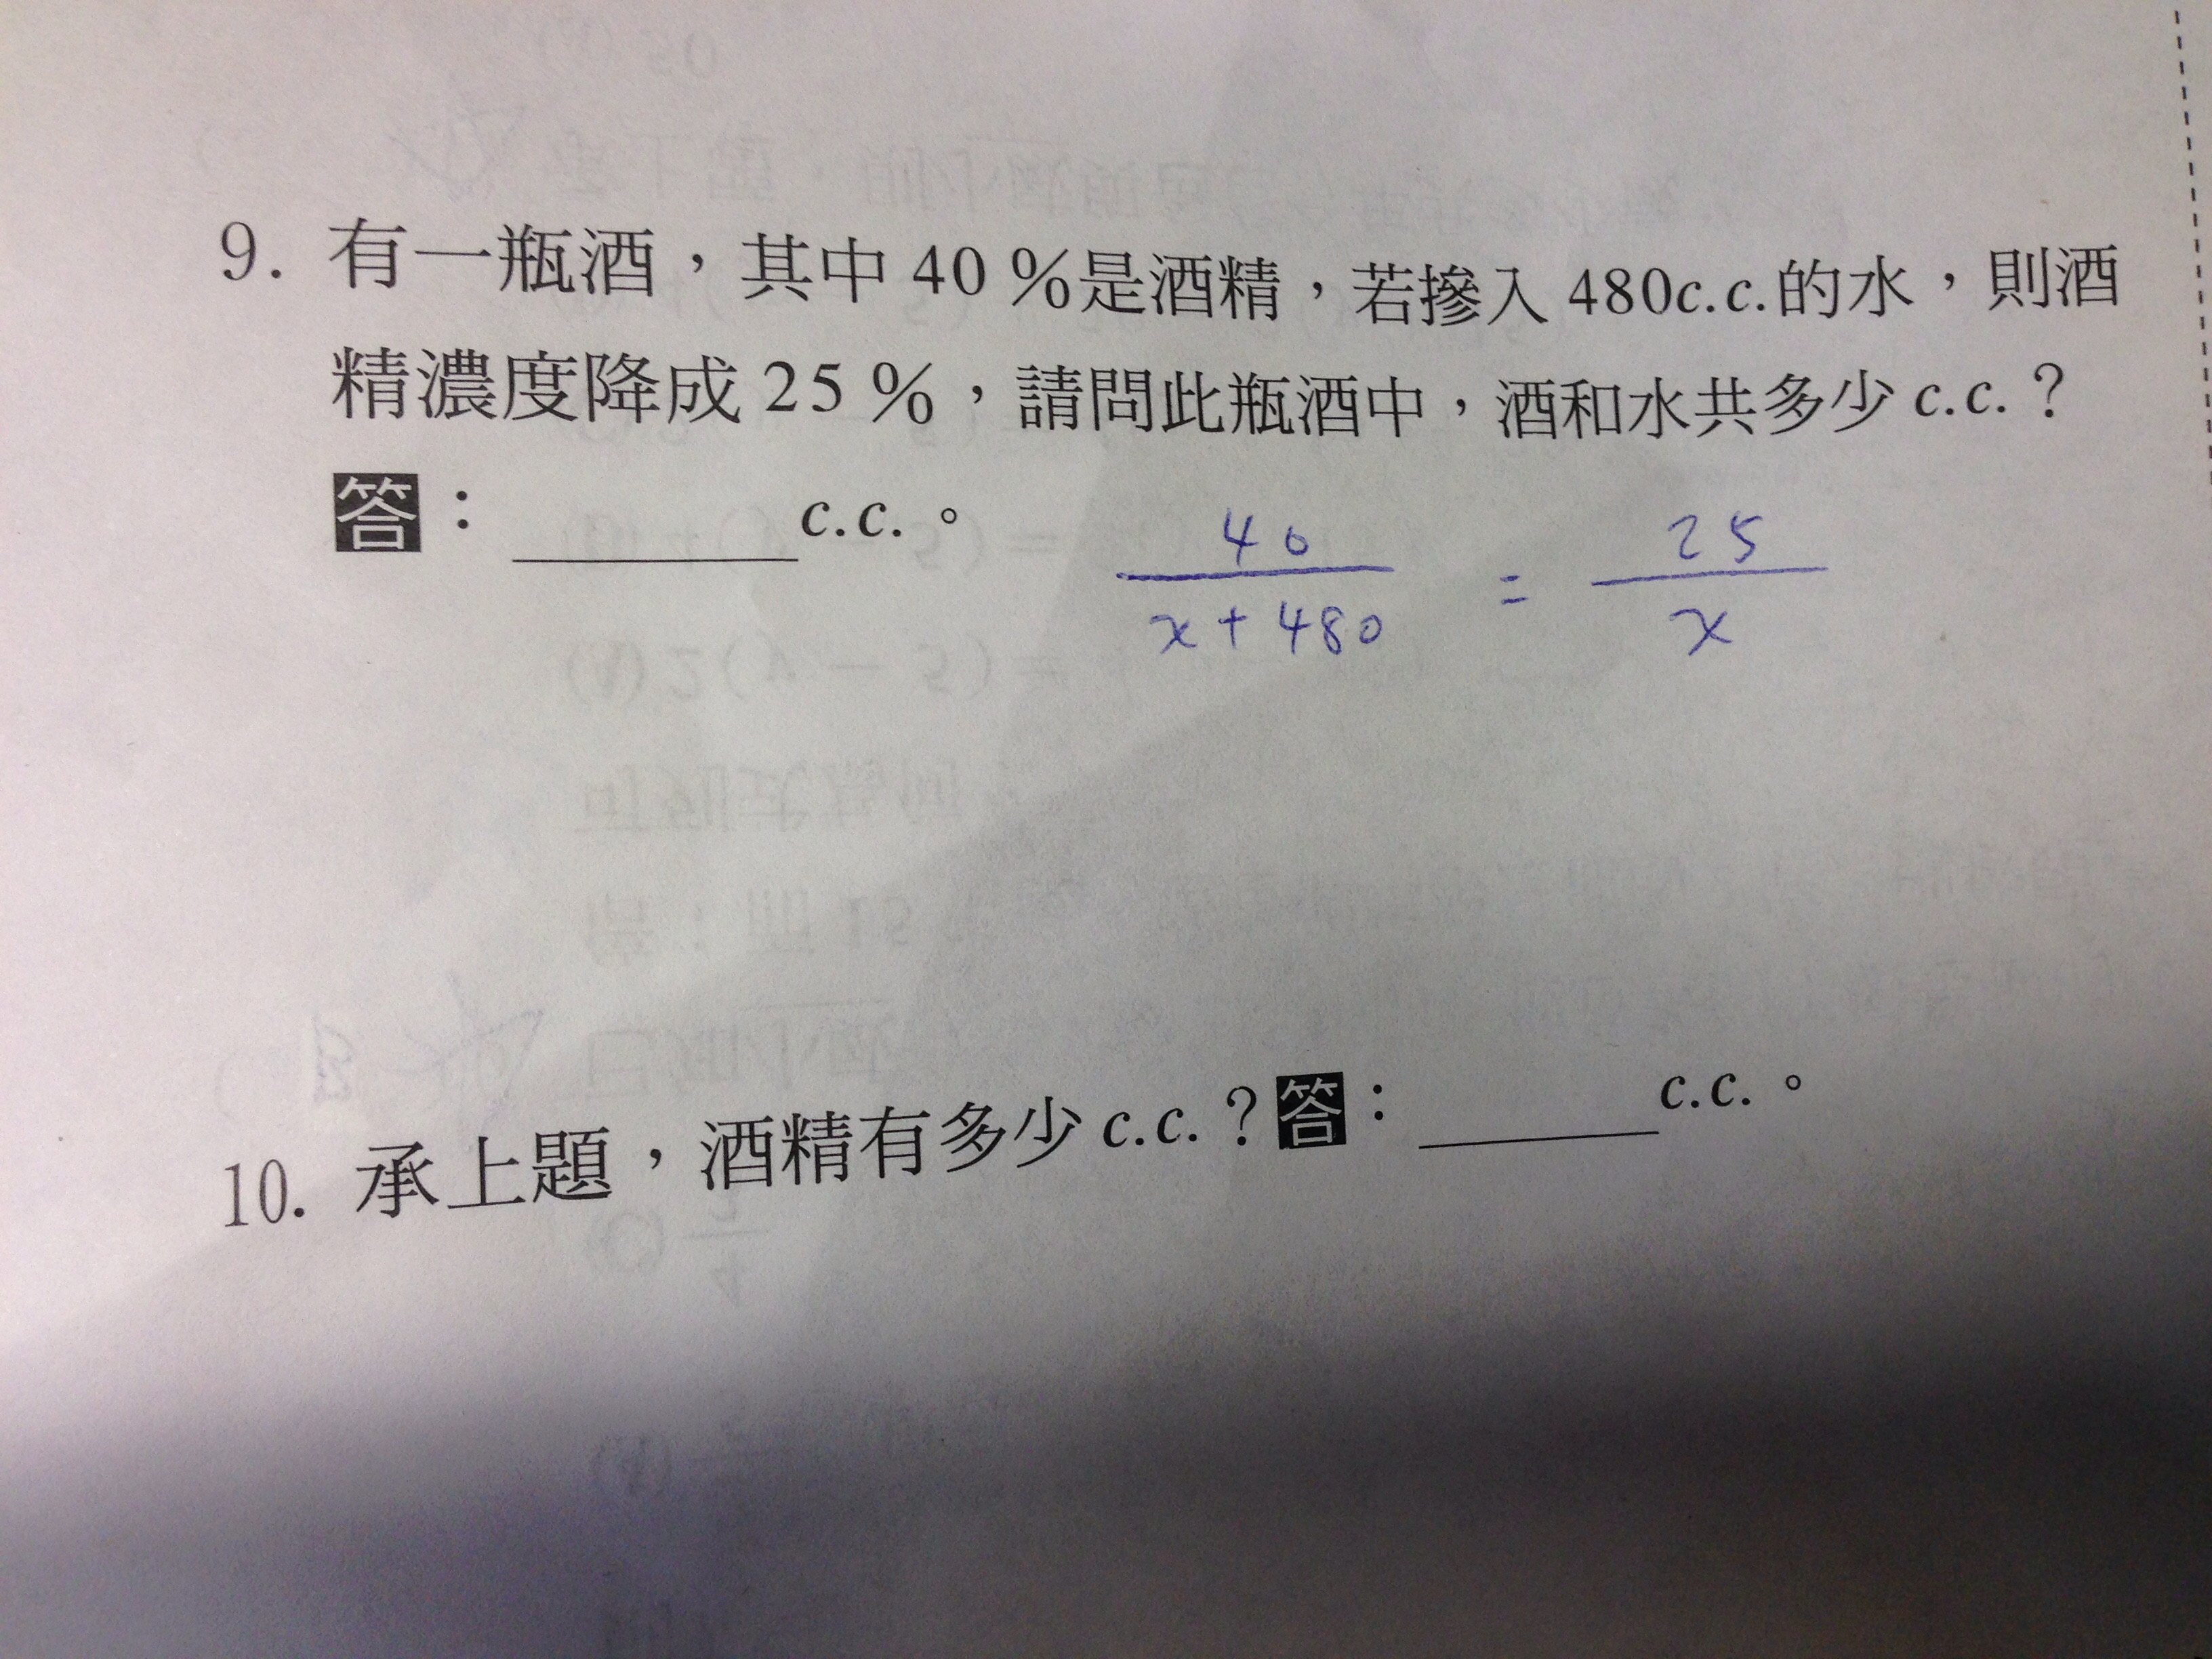 9. 有一瓶酒，其中 40 %是酒精，若摻入 480c.c.的水，則酒
精濃度降成 25 %，請問此瓶酒中，酒和水共多少 c.c.？
答：________c.c.。
40 / x + 480 = 25 / x
10. 承上題，酒精有多少 c.c.？答：________c.c.。